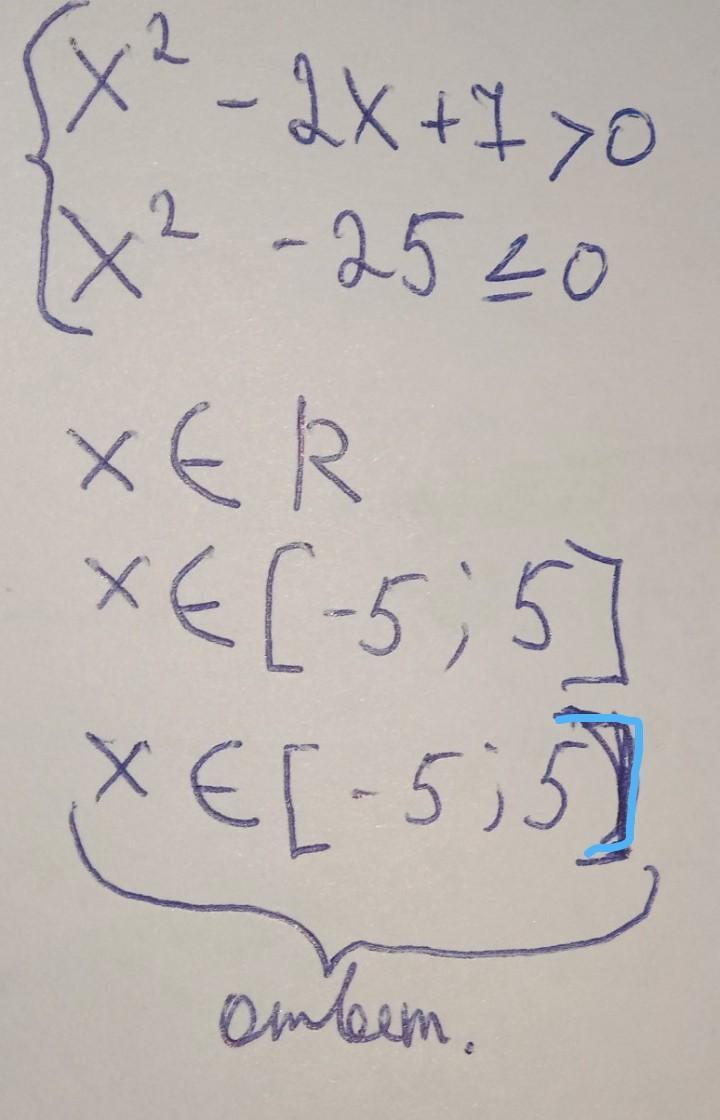 x² - 2x + 7 > 0
x² - 25 ≤ 0
x ∈ R
x ∈ [-5 ; 5]
x ∈ [-5 ; 5]
ответ.